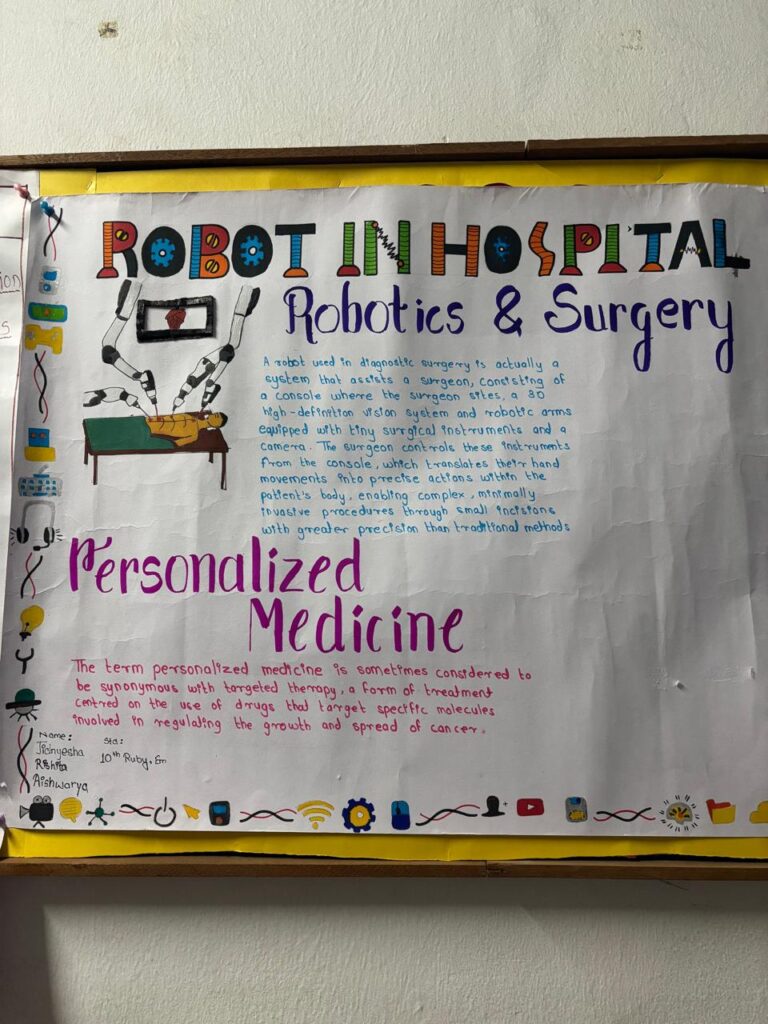 ROBOT IN HOSPITAL
Robotics & Surgery
A robot used in diagnostic surgery is actually a
system that assists a surgeon, consisting of
a console where the surgeon sites, a 3D
high-definition vision system and robotic arms
equipped with tiny surgical instruments and a
camera. The surgeon controls these instruments
from the console, which translates their hand
movements into precise actions within the
patient's body, enabling complex, minimally
invasive procedures through small incisions
with greater precision than traditional methods
Personalized
Medicine
The term personalized medicine is sometimes considered to
be synonymous with targeted therapy, a form of treatment
centred on the use of drugs that target specific molecules
involved in regulating the growth and spread of cancer.
Name: Std:
10th Ruby. Em
Rishita
Aishwarya